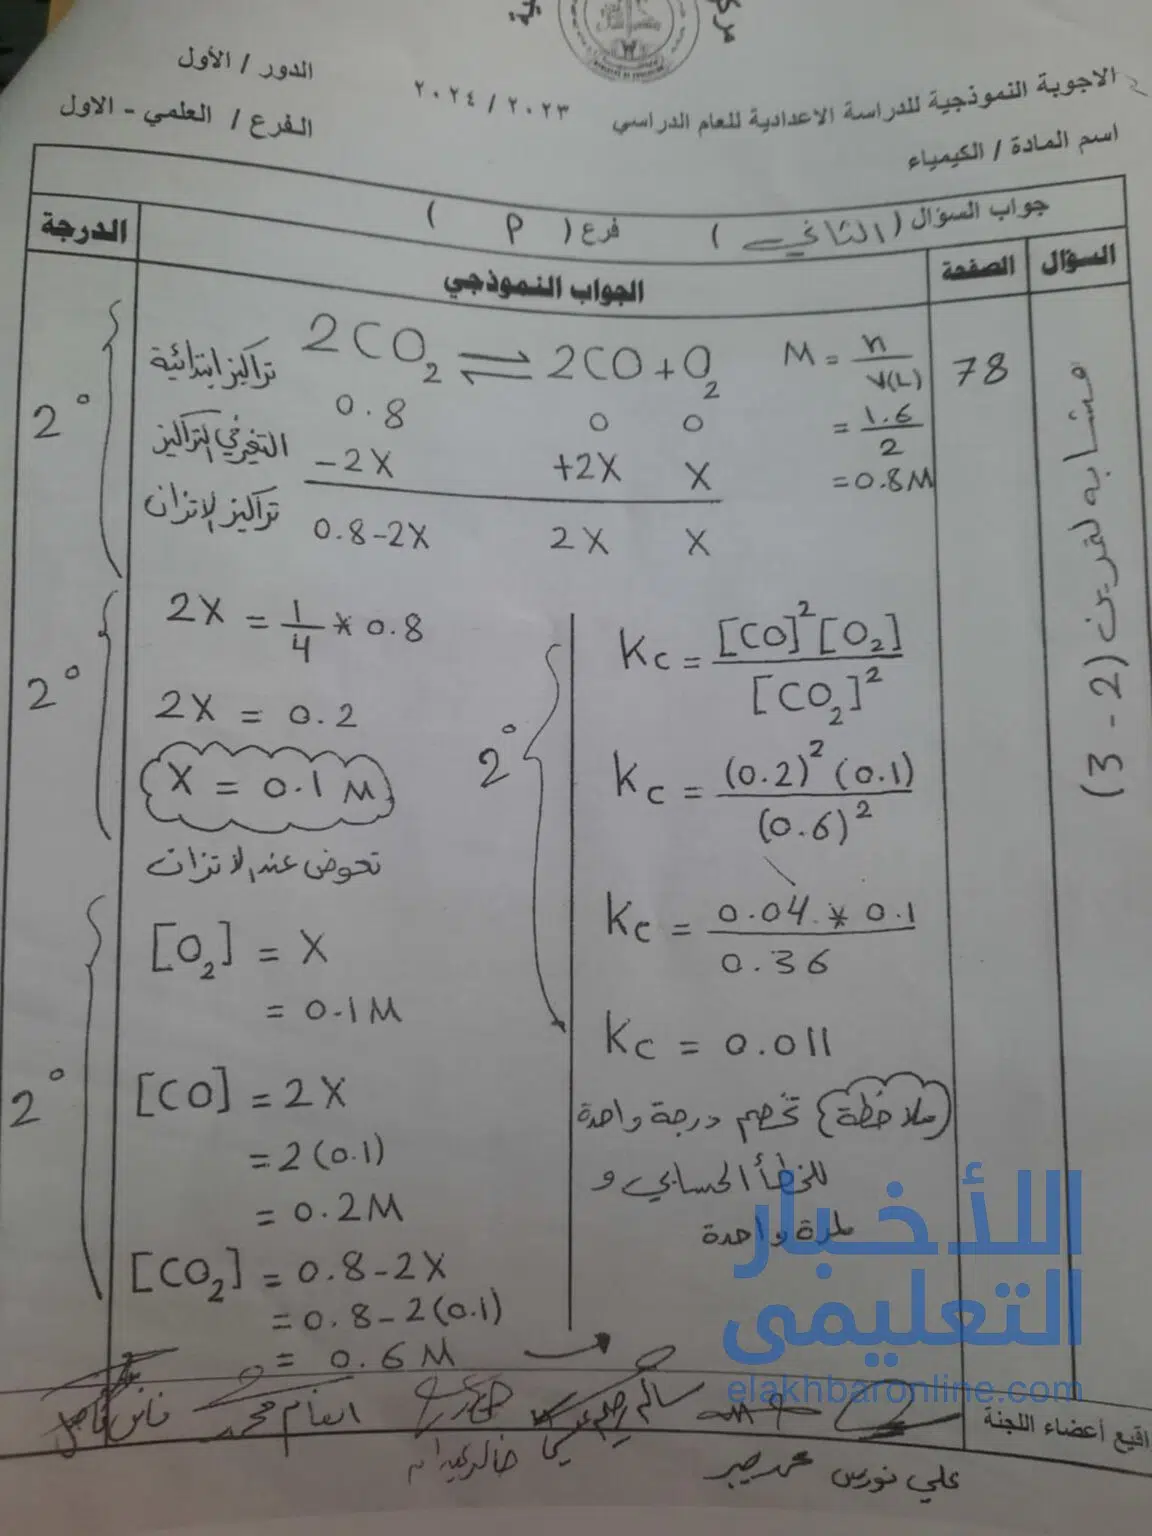 الدور / الأول
الاجوبة النموذجية للدراسة الاعدادية للعام الدراسي ٢٠٢٣ / ٢٠٢٤
الفرع / العلمي - الاول
اسم المادة / الكيمياء
جواب السؤال ( الثاني ) فرع ( P )
السؤال الصفحة الجواب النموذجي الدرجة
مشابه لتمرين (2 - 3)
78
2CO₂ ⇌ 2CO + O₂
تراكيز ابتدائية 0.8 0 0
التغير في التراكيز -2X +2X X
تراكيز الاتزان 0.8-2X 2X X
M = n / V(L)
= 1.6 / 2
= 0.8M
2°
2X = 1/4 * 0.8
2X = 0.2
X = 0.1 M
2°
نعوض عند الاتزان
[O₂] = X
= 0.1M
[CO] = 2X
= 2(0.1)
= 0.2M
[CO₂] = 0.8-2X
= 0.8-2(0.1)
= 0.6M
2°
Kc = [CO]² [O₂] / [CO₂]²
Kc = (0.2)² (0.1) / (0.6)²
Kc = 0.04 * 0.1 / 0.36
Kc = 0.011
2°
(ملاحظة) تخصم درجة واحدة
للخطأ الحسابي و
لمرة واحدة
الأخبار
التعليمى
elakhbaronline.com
أعضاء اللجنة
انعام محمد
علي نورس